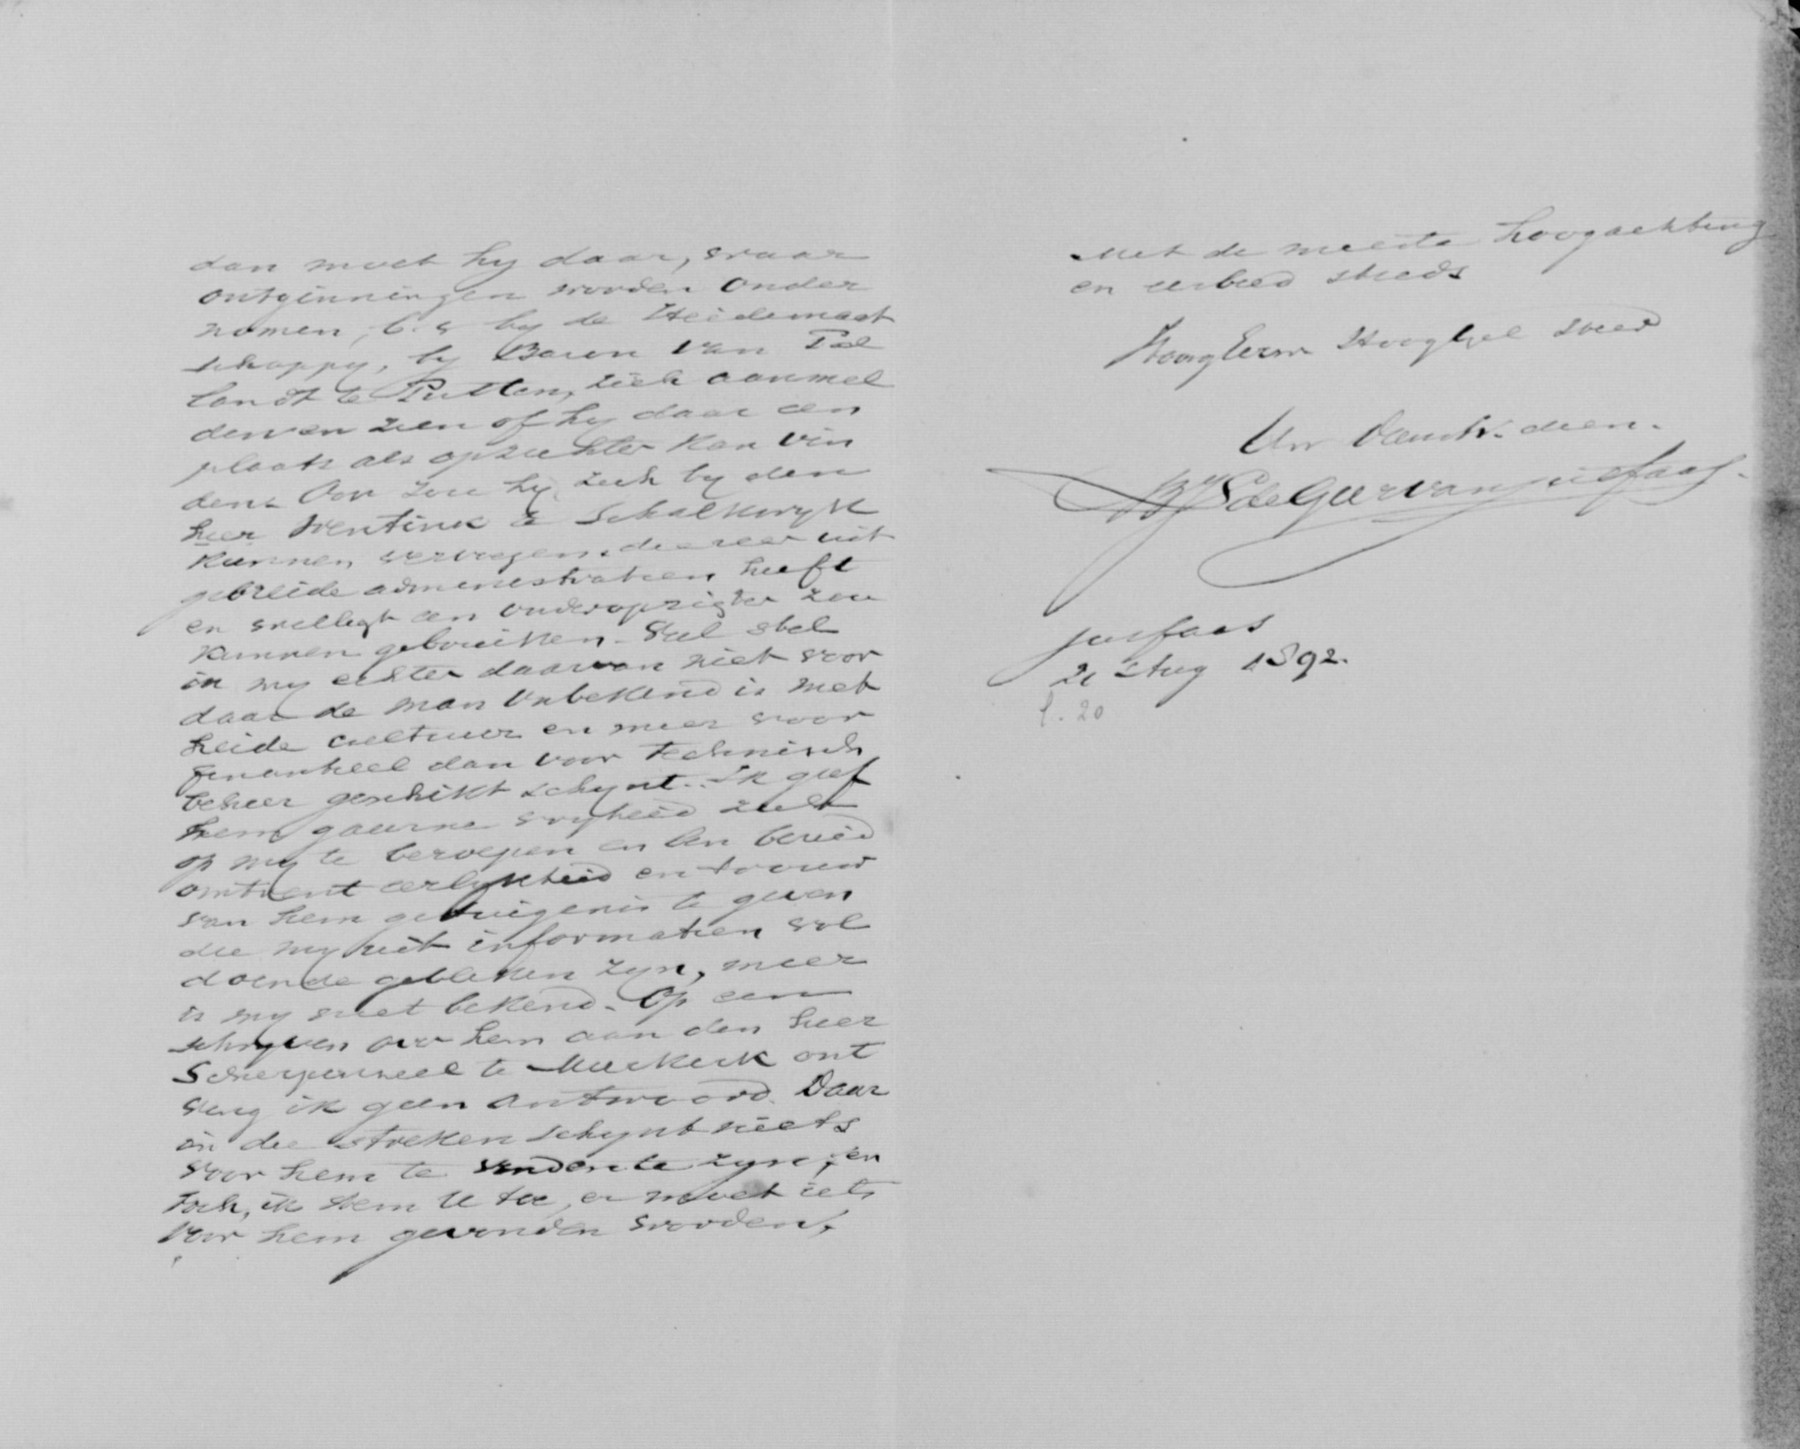 dan moet hy daar, waar
ontginningen worden onder
nomen, b.v. by de Heidemaat
schappy, by Baron van Pal
landt te Putten, zich aanmel
den en zien of hy daar een
plaats als opzichter kan vin
den. Ook zou hy zich by den
heer Wentink te Schalkwyk
kunnen vervoegen die zeer uit
gebreide administratien heeft
en wellicht een onderopzigter zou
kunnen gebruiken. Veel stel
ik my echter daarvan niet voor
daar de man onbekend is met
heide cultuur en meer voor
finantieel dan voor technisch
beheer geschikt schynt. Ik geef
hem gaarne vryheid zich
op my te beroepen en ben bereid
omtrent eerlykheid en trouw
van hem getuigenis te geven
die my uit informatien vol
doende gebleken zyn, meer
is my niet bekend. Op een
schryven over hem aan den heer
Scherpenzeel te Meerkerk ont
ving ik geen antwoord. Daar
in die streken schynt niets
voor hem te vinden te zyn, en
toch, ik stem U toe, er moet iets
voor hem gevonden worden.
Met de meeste hoogachting
en eerbied steeds
HoogEerw HoogGel Heer
Uw Dienstw. dien.
de Geer van Jutfaas.
Jutfaas
21 Aug 1892.
l. 20